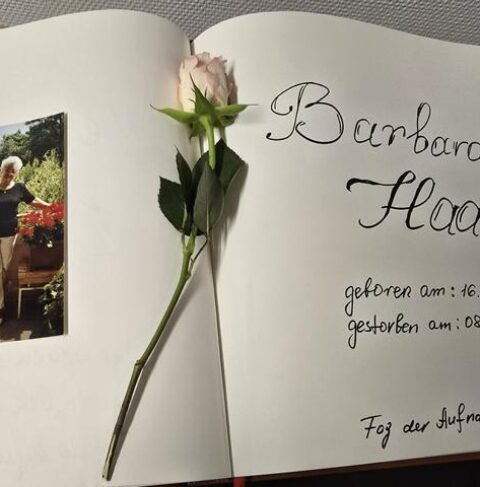 Barbara
Haa
geboren am: 16.
gestorben am: 08
Tag der Aufna